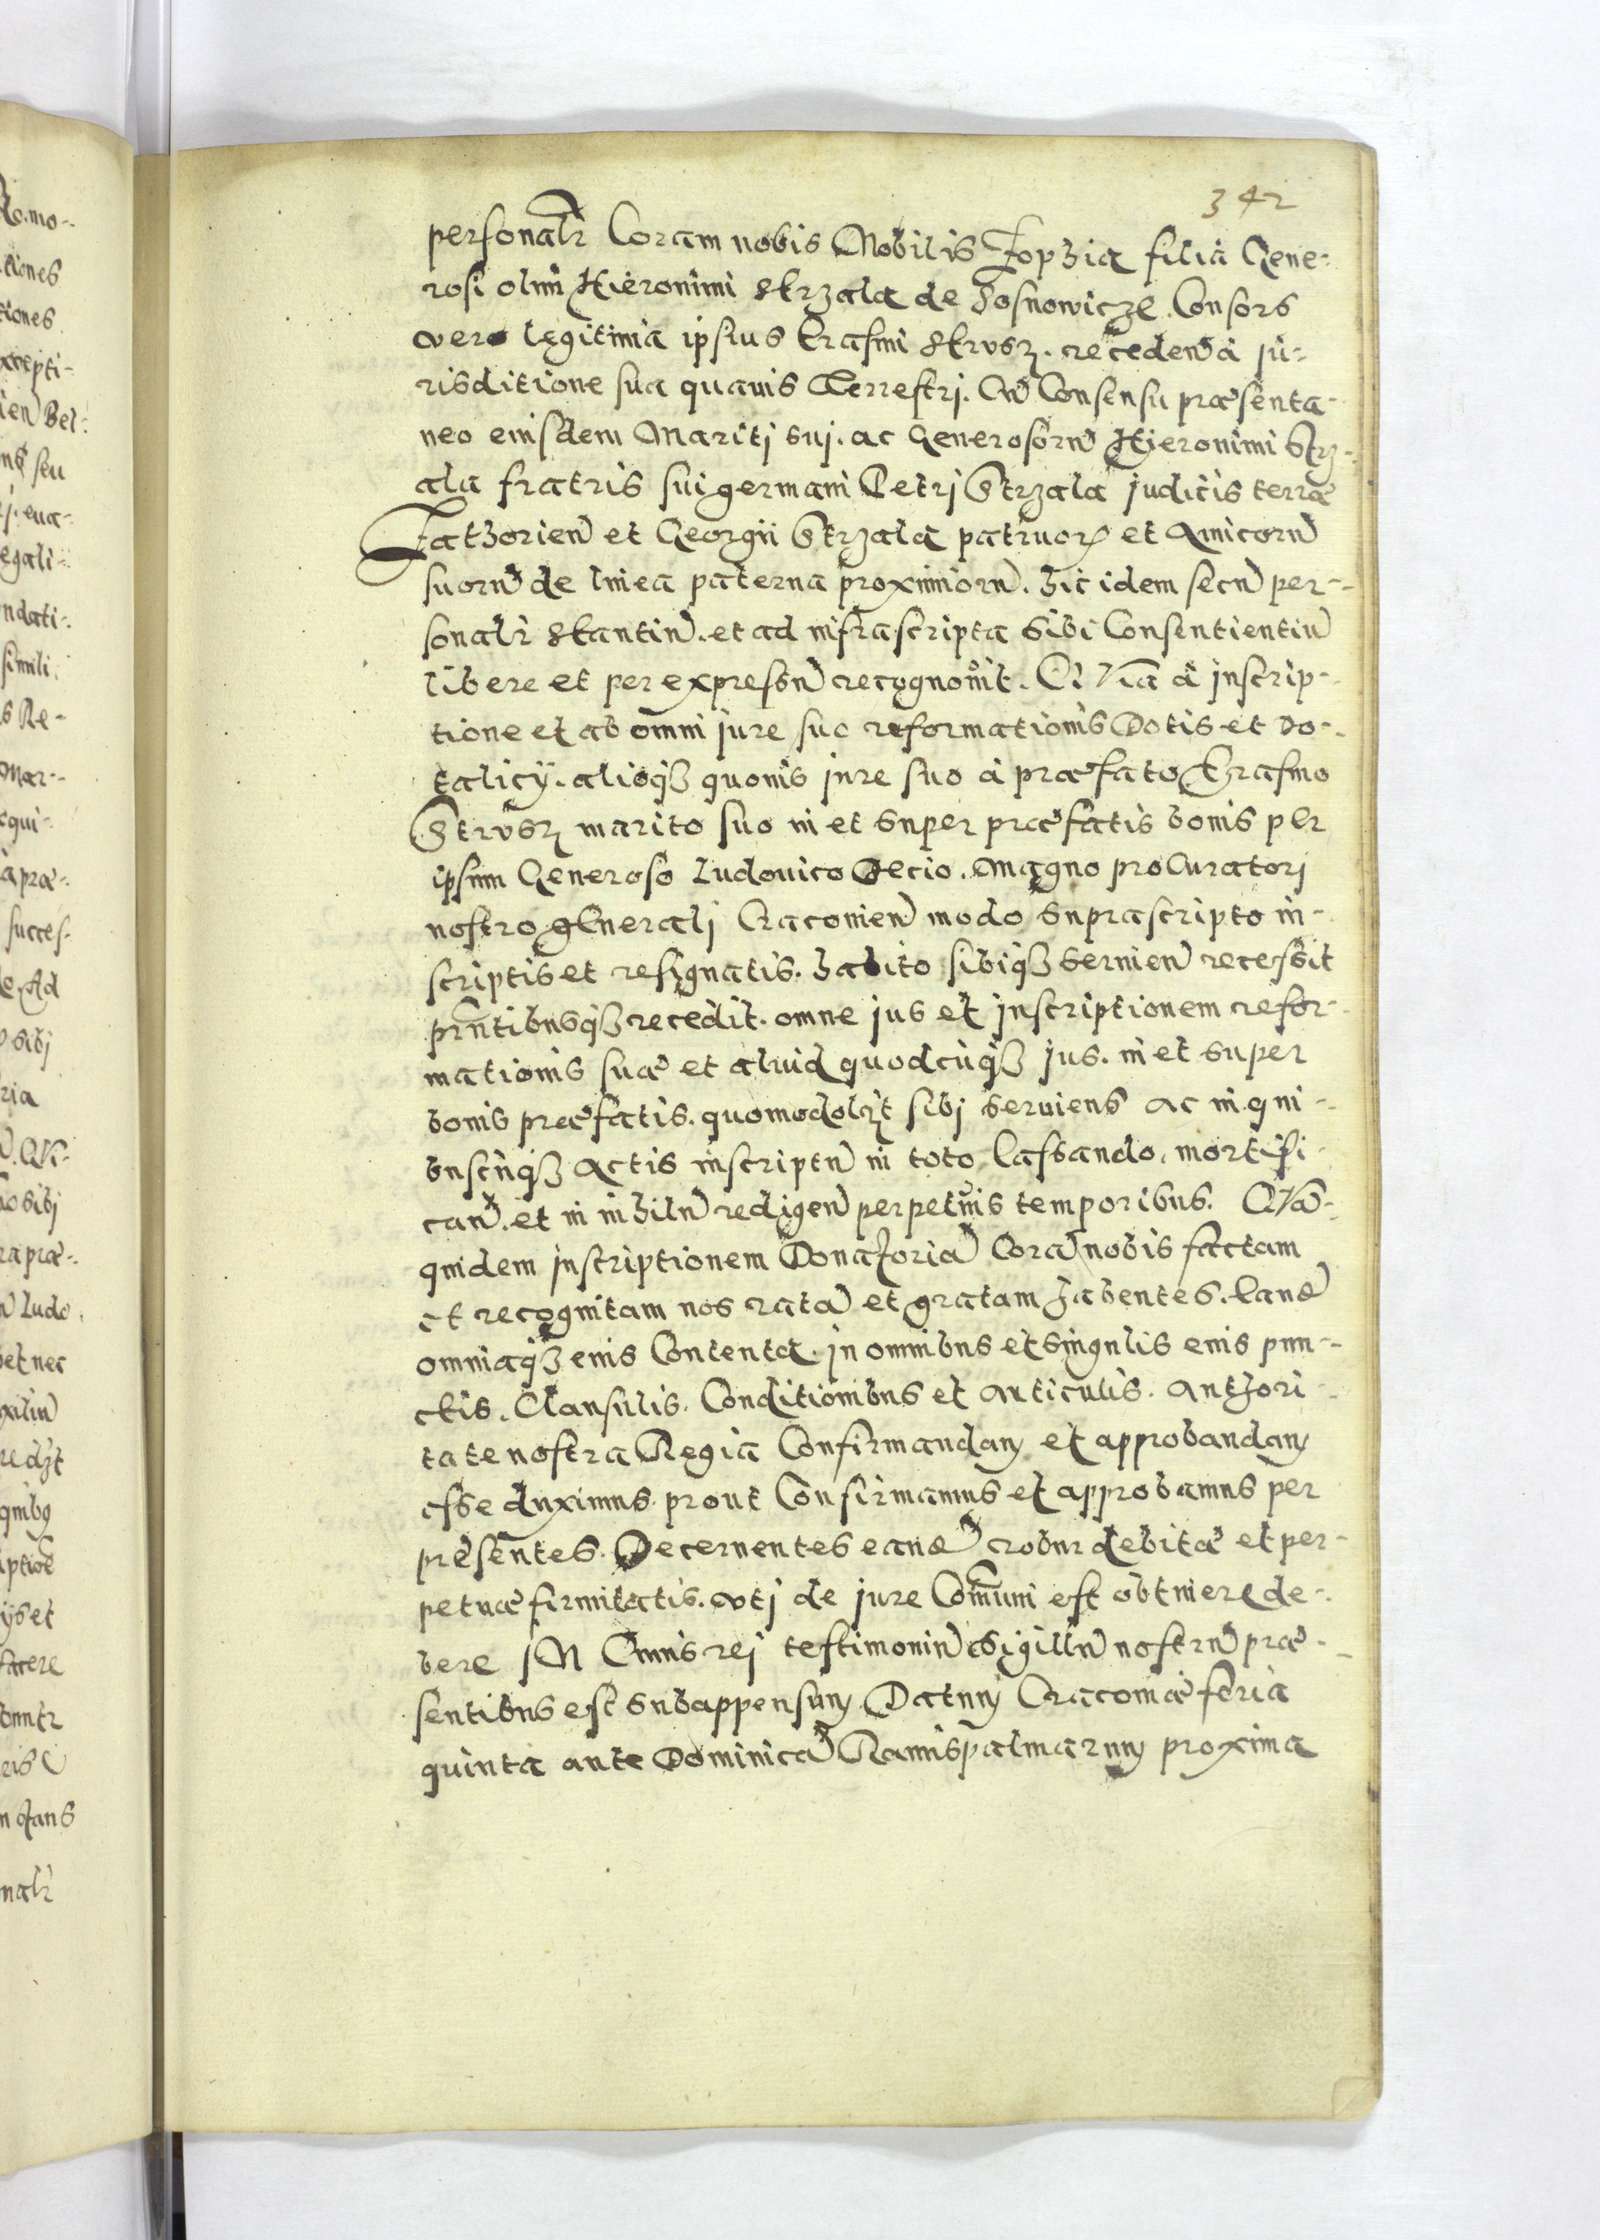 342
personalr Coram nobis Nobilis Zophia filia Gene-
rosi olim Hieronimi Strzala de Sosnowicze. Consors
vero legitima ipsius Erasmi Strusz. recedens a iu-
risditione sua quauis Terrestrj. Cum Consensu præsenta-
neo eiusdem Maritj suj. ac Generosorum Hieronimi Strz-
ala fratris sui germani Petrj Strzala judicis terræ
Zathorien et Georgii Strzala patruorum et Amicorum
suorum de linea paterna proximiorum. hic idem secum per-
sonalr stantium. et ad infrascripta sibi Consentientium
libere et per expressum recognouit. QVia a inscrip-
tione et ab omni jure suo reformationis Dotis et do-
talicÿ. alioqz quouis jure suo a præfato Erasmo
Strusz marito suo in et super præfatis bonis per
ipsum Generoso Ludouico Decio. Magno procuratorj
nostro generalj Cracouien modo suprascripto in-
scriptis et resignatis. habito sibiqz seruien recessit
prntibusqz recedit. omne jus et inscriptionem refor-
mationis suæ et aliud quodcuqz jus. in et super
bonis præfatis. quomodolzt sibj seruiens ac in qui-
buscuqz Actis inscriptum in toto Cassando, mortifi-
can. et in nihilum redigen perpetuis temporibus. QVam-
quidem inscriptionem Donatoriam Coram nobis factam
et recognitam nos ratam et gratam habentes. Eand
omniaqz eius Contenta. in omnibus et singulis eius pun-
ctis. Clausulis. Conditionibus et articulis. Authori-
tate nostra Regia Confirmandam et approbandam
esse duximus. prout Confirmamus et approbamus per
præsentes. Decernentes eand robur debitæ et per-
petuæ firmitatis. vtj de jure Comuni est obtinere de-
bere IN Cuius rej testimonium Sigillum nostrum præ-
sentibus est subappensum Datum Cracouiæ feria
quinta ante Dominicam Ramispalmarum proxima